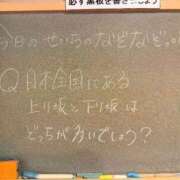 必ず黒板を書きましょう
今日のせいかのなぞなぞ
Q日本全国にある
上り坂と下り坂は
どっちが多いでしょう?